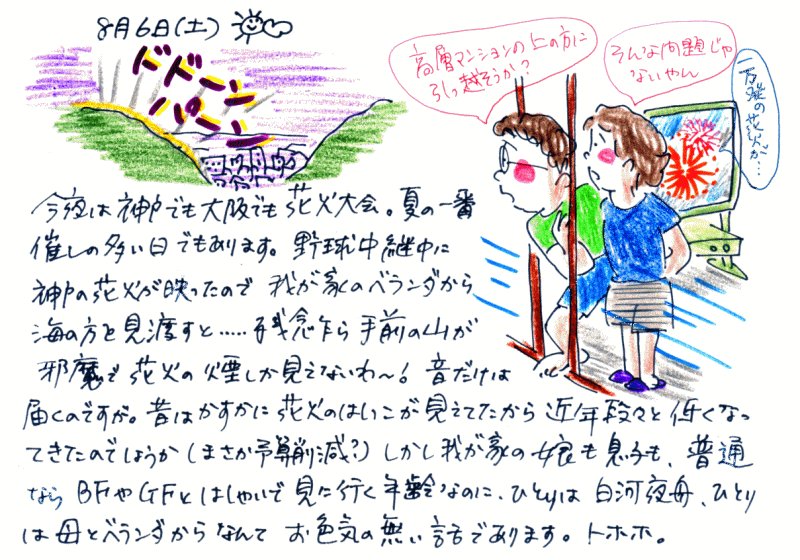 8月6日(土)
ドドーン
パーン
高層マンションの上の方に
引っ越そうか?
そんな問題じゃ
ないやん
万発の花火が…
今夜は神戸でも大阪でも花火大会。夏の一番
催しの多い日でもあります。野球中継中に
神戸の花火が映ったので 我が家のベランダから
海の方を見渡すと……残念乍ら手前の山が
邪魔で花火の煙しか見えないわ〜! 音だけは
届くのですが。昔はかすかに花火のはしっこが見えてたから近年段々と低くなっ
てきたのでしょうか(まさか予算削減?)しかし我が家の娘も息子も、普通
なら BFやGFとはしゃいで見に行く年齢なのに、ひとりは白河夜舟、ひとり
は母とベランダからなんて お色気の無い話であります。トホホ。